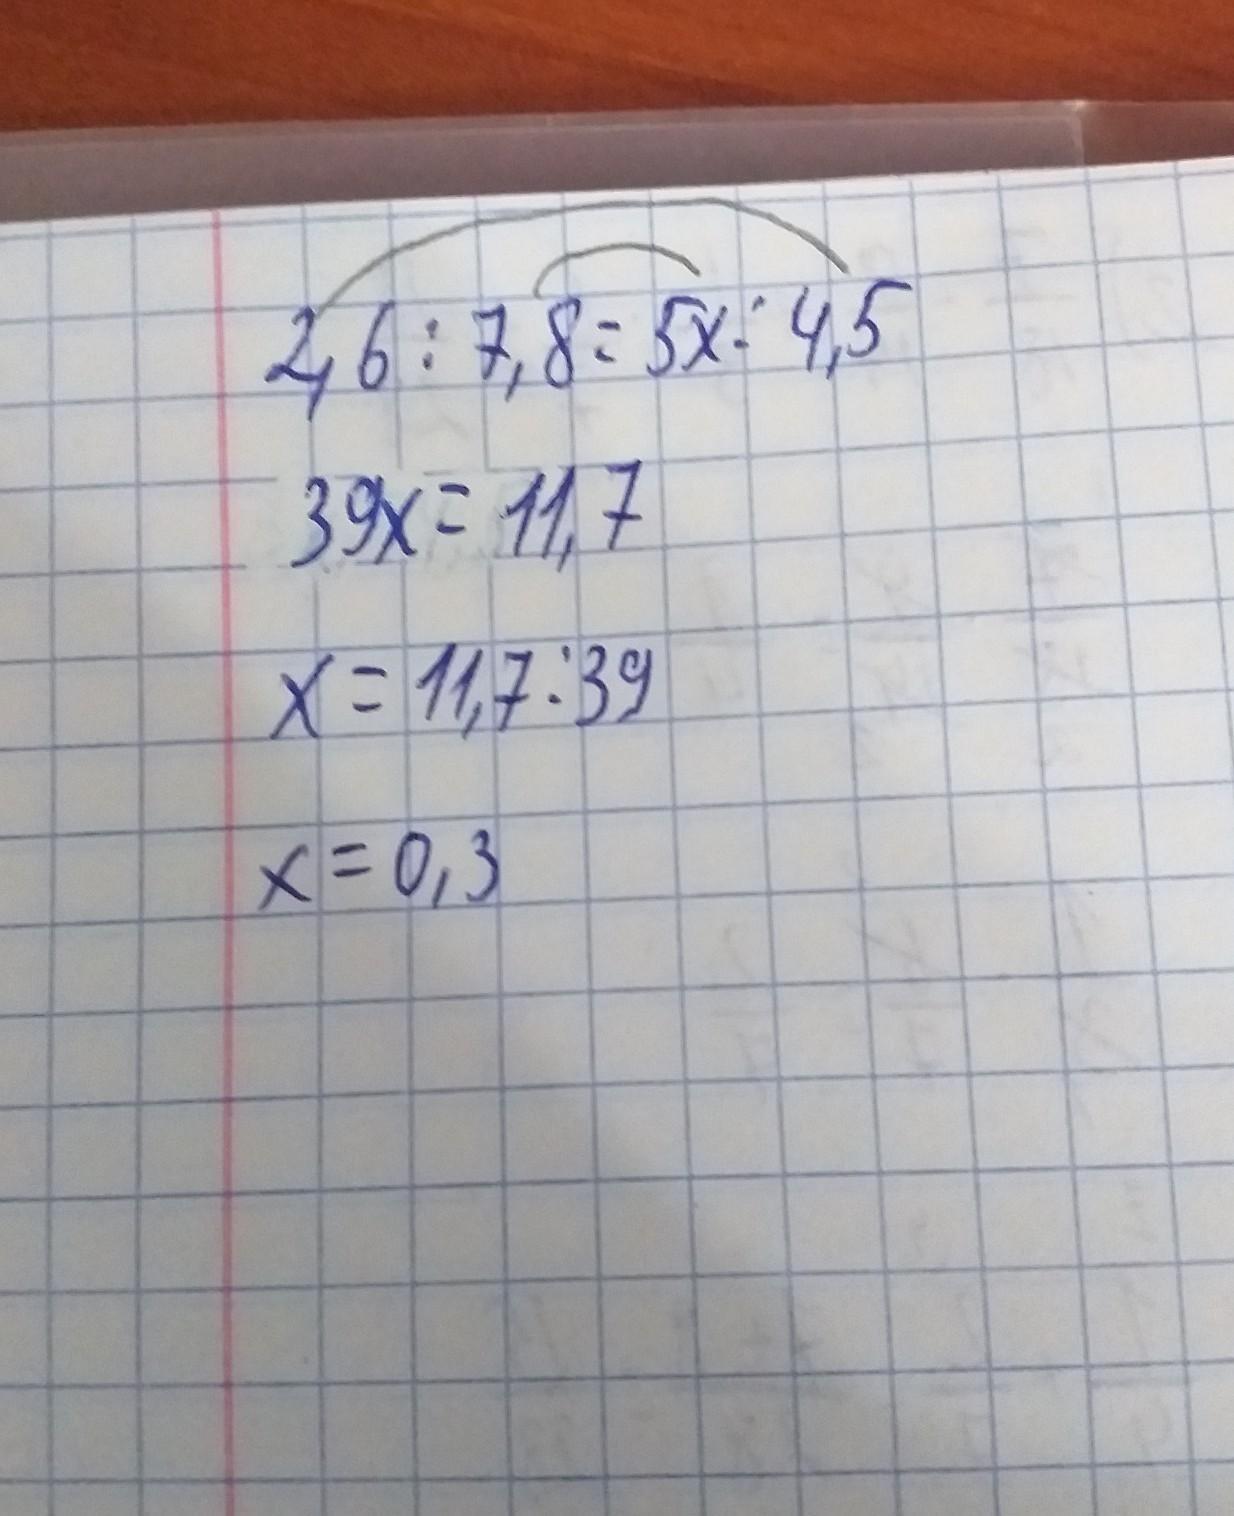 2,6 : 7,8 = 5x : 4,5
39x = 11,7
x = 11,7 : 39
x = 0,3